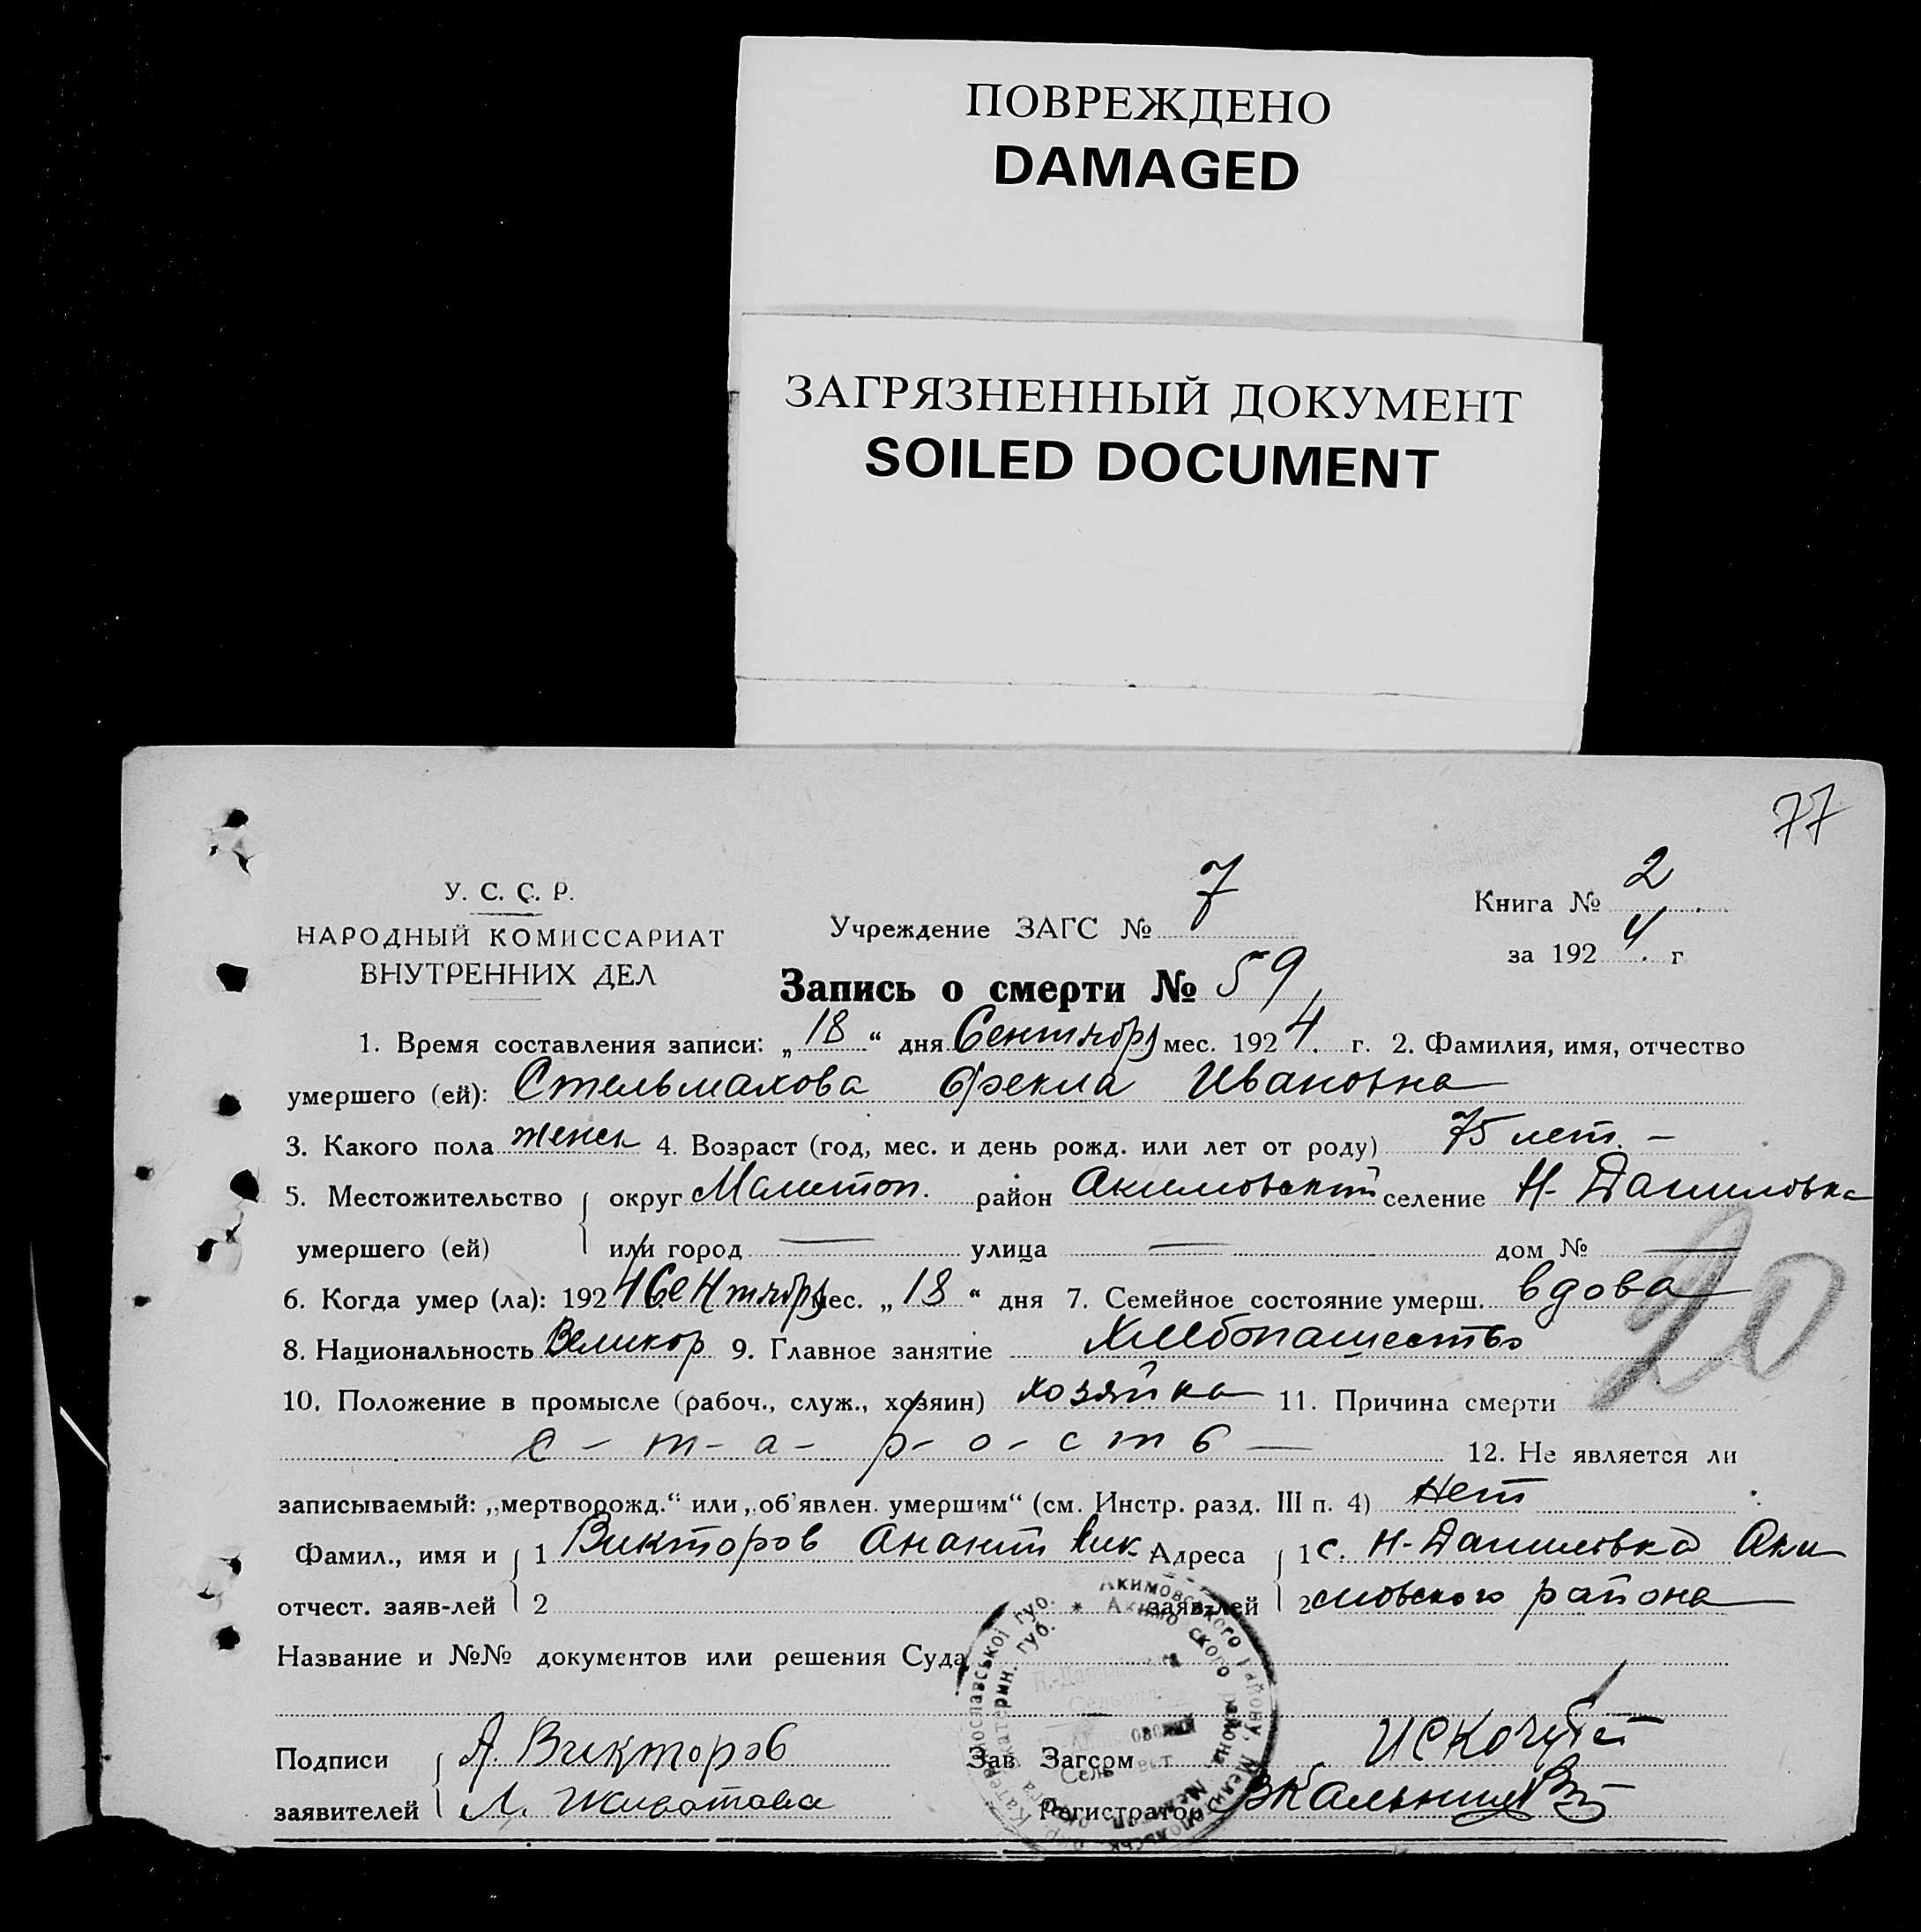 ПОВРЕЖДЕНО
DAMAGED
ЗАГРЯЗНЕННЫЙ ДОКУМЕНТ
SOILED DOCUMENT
77
У. С. С. Р.
НАРОДНЫЙ КОМИССАРИАТ
ВНУТРЕННИХ ДЕЛ
Учреждение ЗАГС № 7
Книга № 2
за 192 4 г
Запись о смерти № 59
1. Время составления записи: „ 18 “ дня Сентября мес. 192 4. г. 2. Фамилия, имя, отчество
умершего (ей): Стельмахова Фекла Ивановна
3. Какого пола женск 4. Возраст (год, мес. и день рожд. или лет от роду) 75 лет. —
5. Местожительство округ Мелитоп. район Акимовский селение Н-Даниловка
умершего (ей) или город — улица — дом № —
6. Когда умер (ла): 192 4 Сентября мес. „ 18 “ дня 7. Семейное состояние умерш. вдова
20
8. Национальность Великор 9. Главное занятие Хлебопашество
10. Положение в промысле (рабоч., служ., хозяин) хозяйка 11. Причина смерти
с - т - а - р - о - с т ь — 12. Не является ли
записываемый: „мертворожд.“ или „об'явлен. умершим“ (см. Инстр. разд. III п. 4) Нет
Фамил., имя и 1 Викторов Анант Вик. Адреса 1 с. Н-Даниловка Аки
отчест. заяв-лей 2 заяв-лей 2 мовского района
Название и №№ документов или решения Суда
Подписи А. Викторов Зав. Загсом
заявителей Л. Регистратор